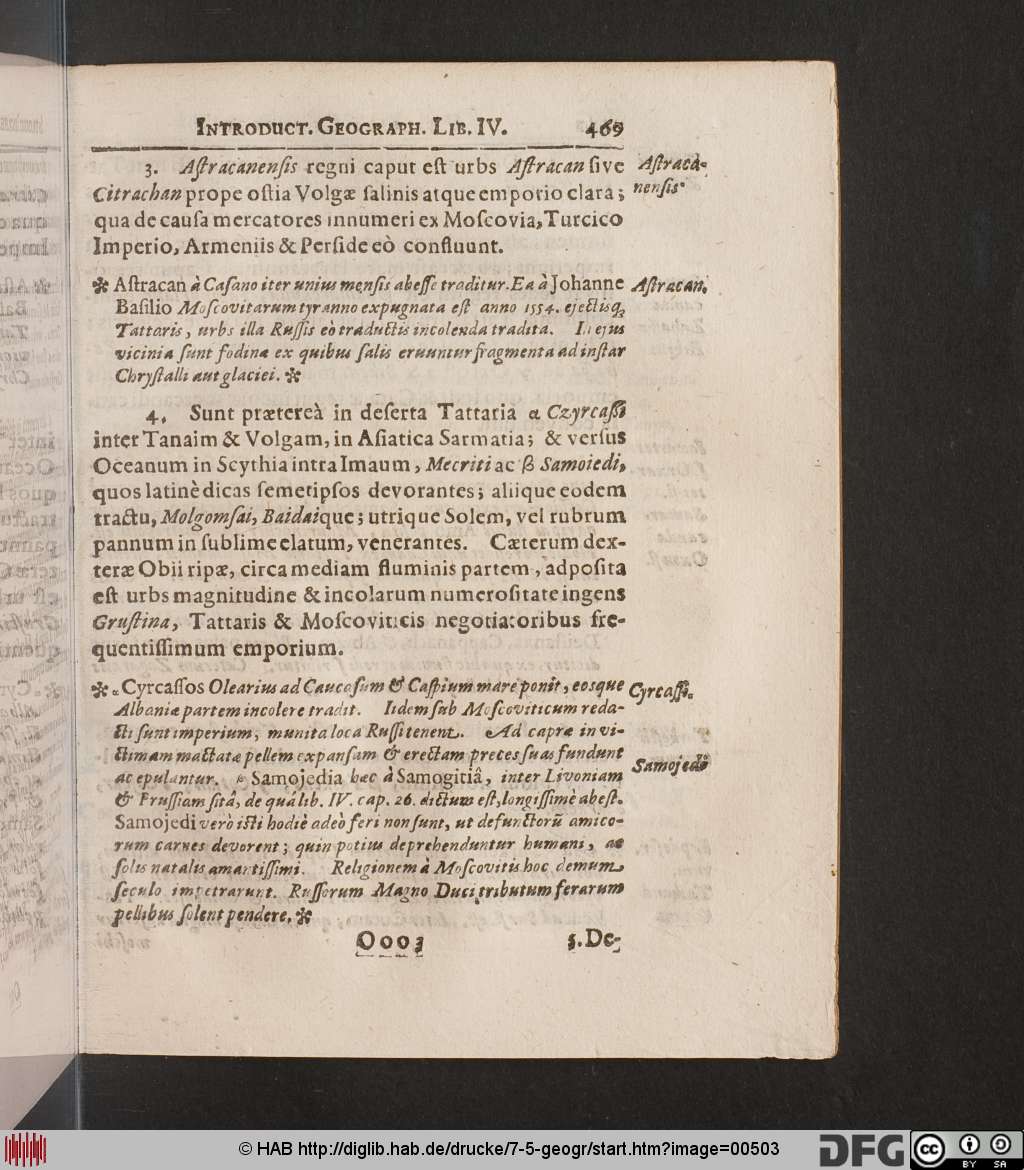 INTRODUCT. GEOGRAPH. LIB. IV. 469
3. Aſtracanenſis regni caput eſt urbs Aſtracan ſive
Aſtraca-
nenſis
Citrachan prope oſtia Volgæ ſalinis atque emporio clara;
qua de cauſa mercatores innumeri ex Moſcovia, Turcico
Imperio, Armeniis & Perſide eò confluunt.
✽ Aſtracan à Caſano iter unius menſis abeſſe traditur. Ea à Johanne
Aſtracan.
Baſilio Moſcovitarum tyranno expugnata eſt anno 1554. ejectisq;
Tattaris, urbs illa Ruſſis eò traductis incolenda tradita. In ejus
vicinia ſunt fodinæ ex quibus ſalis eruuntur fragmenta ad inſtar
Chryſtalli aut glaciei. ✽
4. Sunt prætereà in deſerta Tattaria α Czyrcaſſi
inter Tanaim & Volgam, in Aſiatica Sarmatia; & verſus
Oceanum in Scythia intra Imaum, Mecriti ac β Samoiedi,
quos latinè dicas ſemetipſos devorantes; aliique eodem
tractu, Molgomſai, Baidaique; utrique Solem, vel rubrum
pannum in ſublime elatum, venerantes. Cæterum dex-
teræ Obii ripæ, circa mediam fluminis partem, adpoſita
eſt urbs magnitudine & incolarum numeroſitate ingens
Gruſtina, Tattaris & Moſcoviticis negotiatoribus fre-
quentiſſimum emporium.
✽ α Cyrcaſſos Olearius ad Caucaſum & Caſpium mare ponit, eosque
Cyrcaſſi.
Albaniæ partem incolere tradit. Iidem ſub Moſcoviticum reda-
cti ſunt imperium, munita loca Ruſſi tenent. Ad capræ in vi-
ctimam mactatæ pellem expanſam & erectam preces ſuas fundunt
ac epulantur. β Samojedia hæc à Samogitiâ, inter Livoniam
Samojedi
& Pruſſiam ſitâ, de quâ lib. IV. cap. 26. dictum eſt, longiſſimè abeſt.
Samojedi verò iſti hodiè adeò feri non ſunt, ut defunctorū amico-
rum carnes devorent; quin potius deprehenduntur humani, ac
ſolis natalis amantiſſimi. Religionem à Moſcovitis hoc demum
ſeculo impetrarunt. Ruſſorum Magno Duci tributum ferarum
pellibus ſolent pendere. ✽
Ooo 3 5. De-
© HAB http://diglib.hab.de/drucke/7-5-geogr/start.htm?image=00503
DFG
cc
BY SA